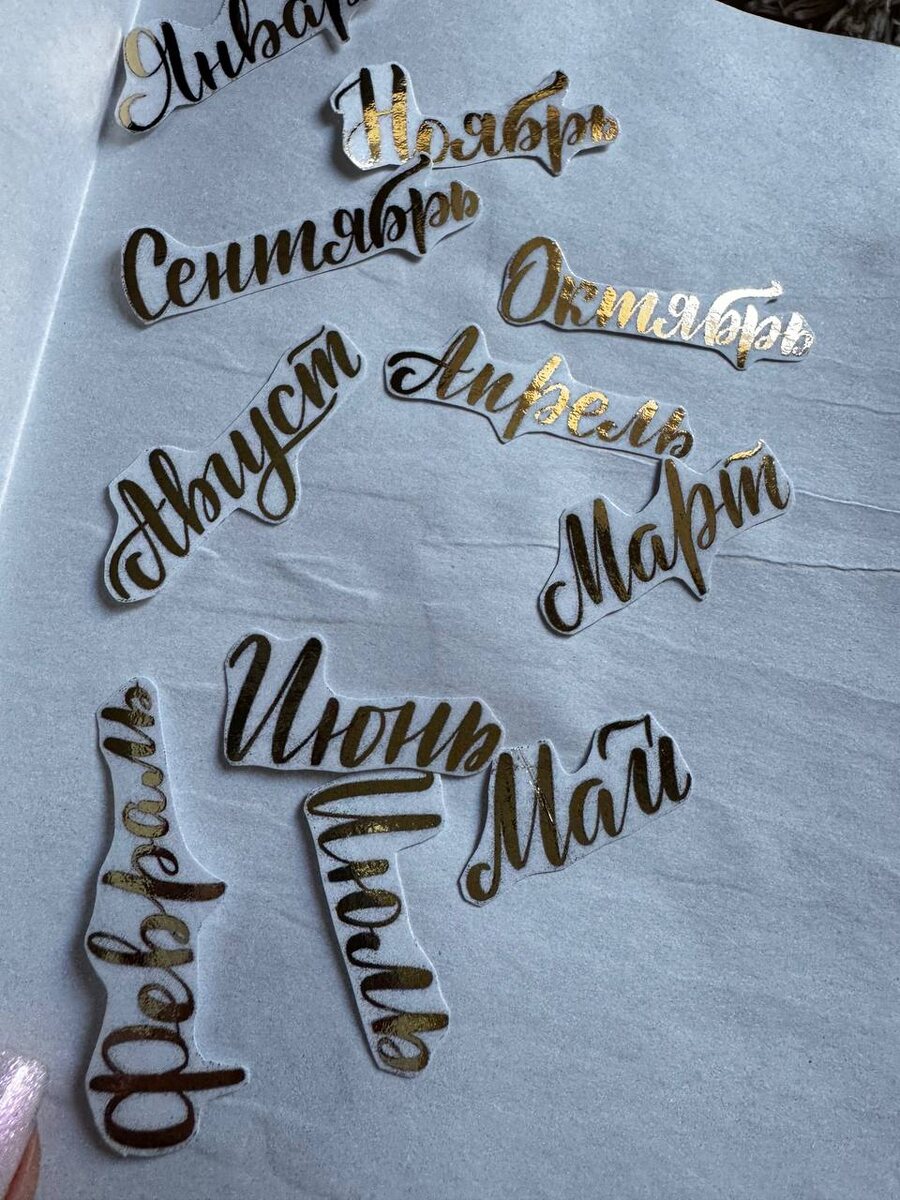 Январ
Ноябрь
Сентябрь
Октябрь
Август
Апрель
Март
Июнь
Май
Июль
Февраль